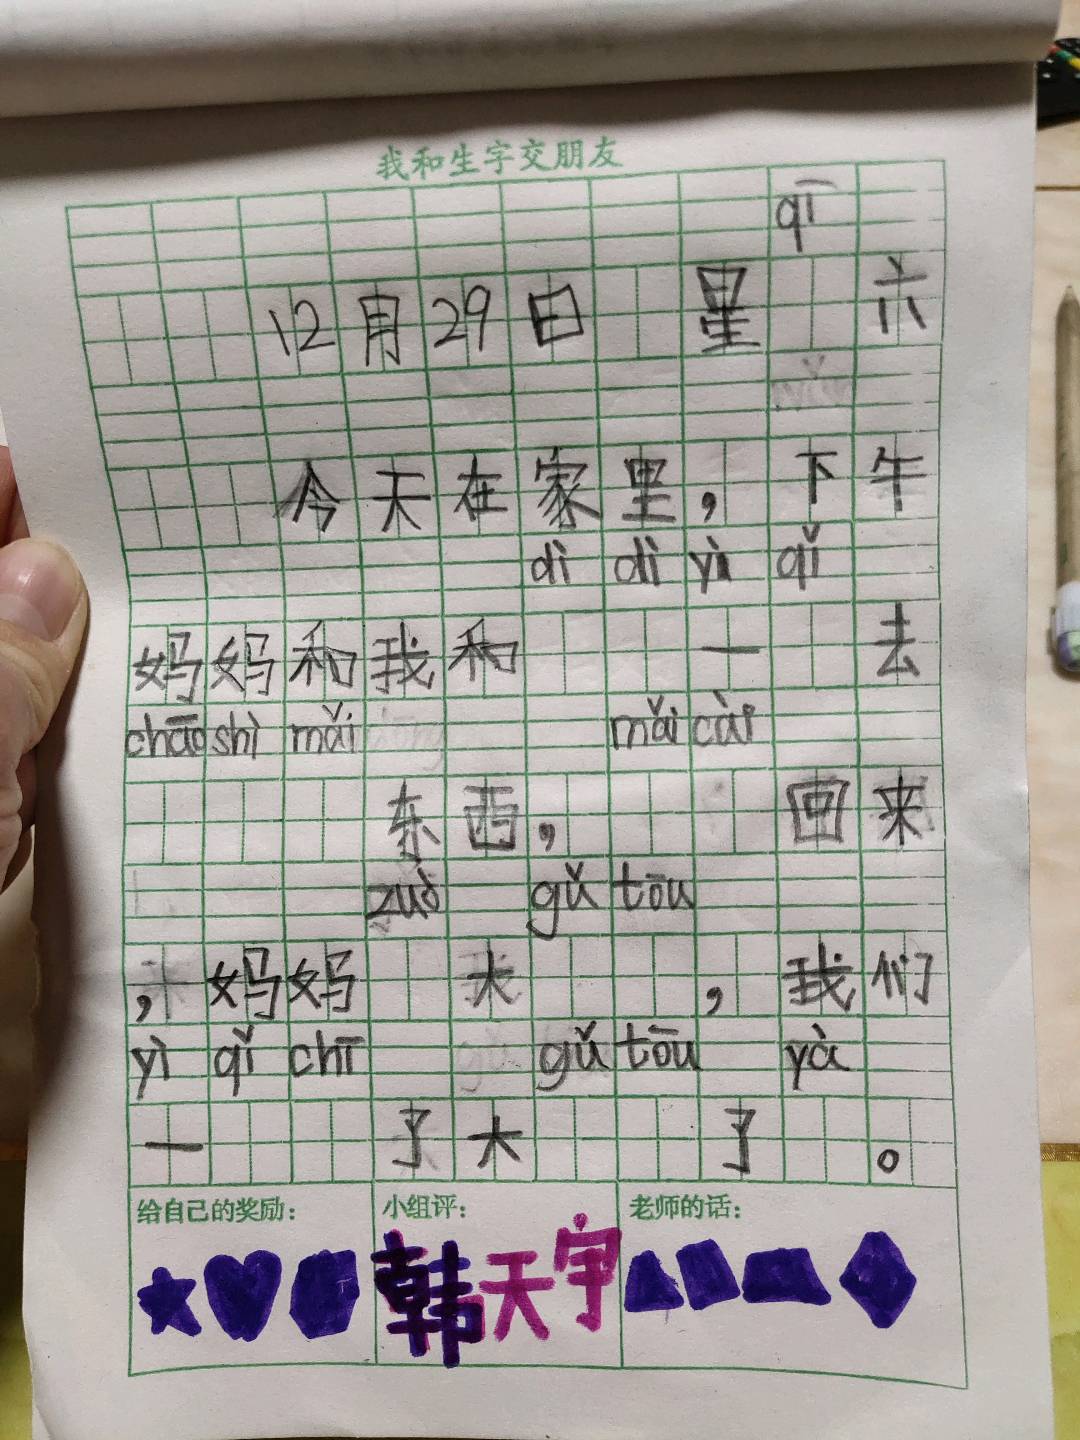 我和生字交朋友
qī
12月29日 星 六
今天在家里，下午
dì dì yì qǐ
妈妈和我和 一 去
chāo shì mǎi mǎi cài
东西， 回来
zuò gǔ tōu
，妈妈 大 ，我们
yì qǐ chī gǔ tōu yà
一 了大 了 。
给自己的奖励： 小组评： 老师的话：
韩天宇